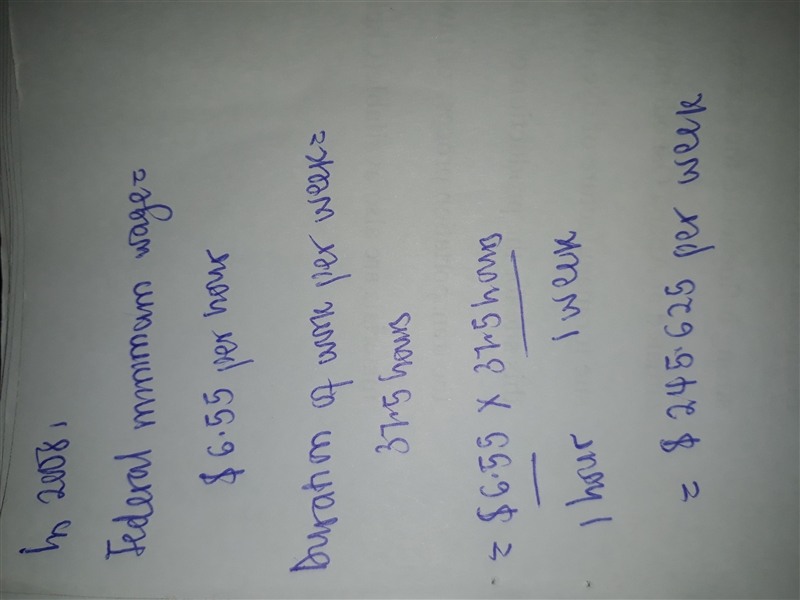 In 2008,
Federal minimum wage=
$ 6.55 per hour
Duration of work per week=
37.5 hours
= $ 6.55 X 37.5 hours
1 hour 1 week
= $ 245.625 per week